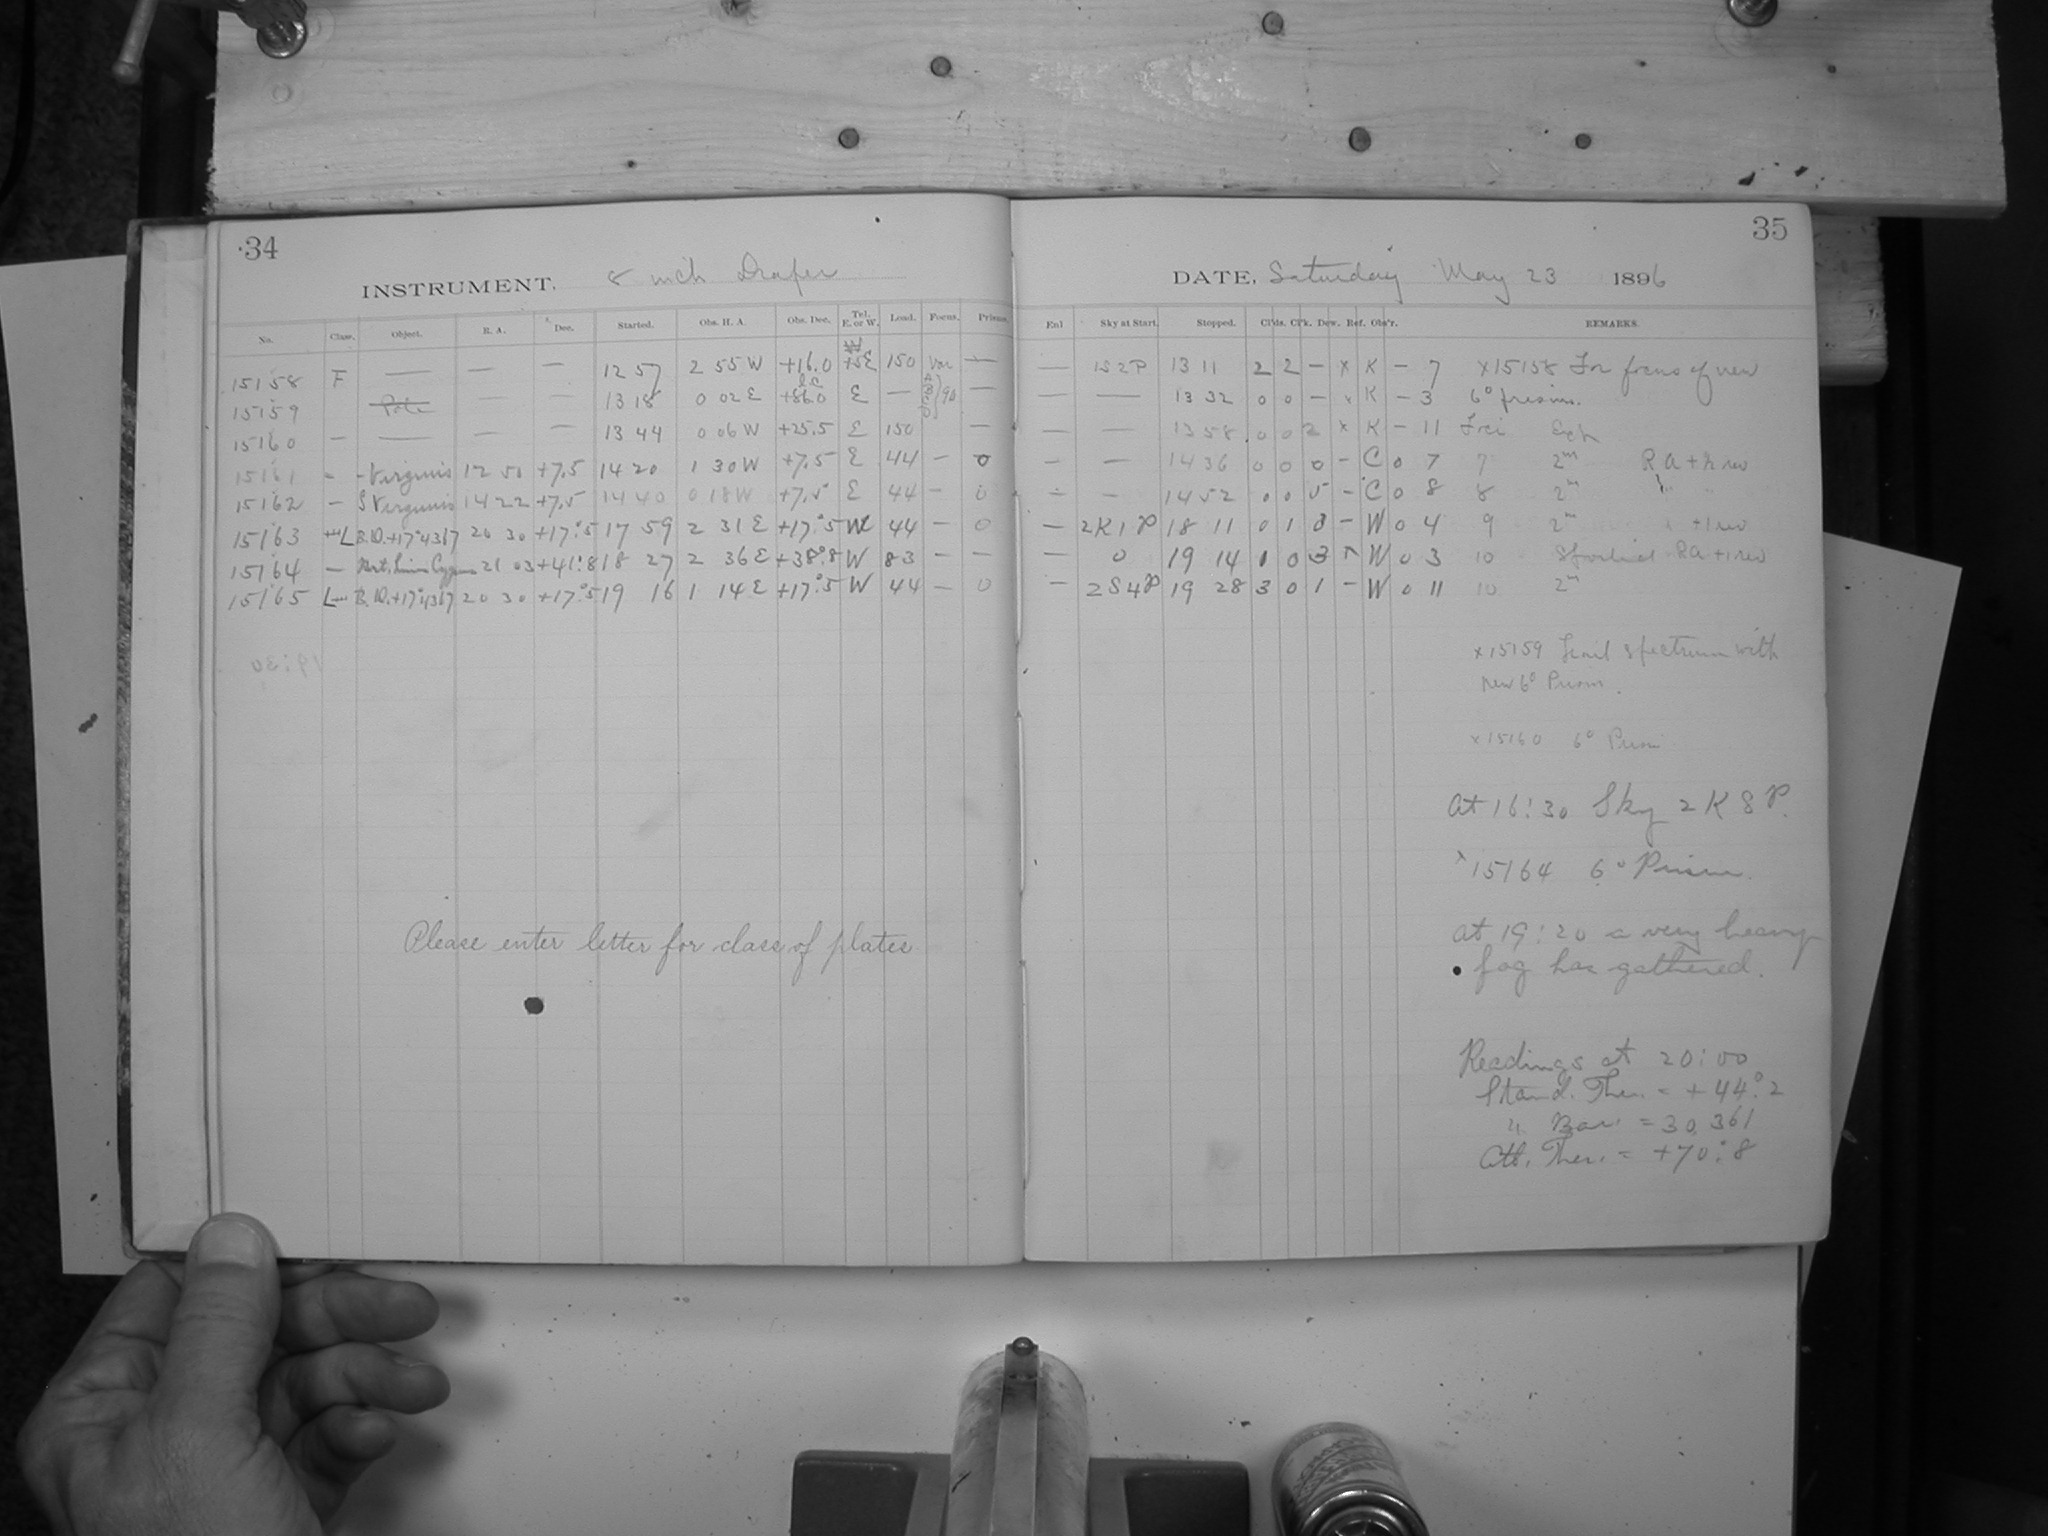 34
INSTRUMENT. 8 inch Draper
No. Class. Object. R. A. Dec. Started. Obs. H. A. Obs. Dec. Tel. E. or W. Load. Focus. Prisms.
15158 F — — — 12 57 2 55 W +16.0 E 150 Var —
15159 Pole — — 13 18 0 02 E +86.0 E — 90 —
15160 — — — — 13 44 0 06 W +25.5 E 150 —
15161 - - Virginis 12 50 +7.5 14 20 1 30 W +7.5 E 44 — 0
15162 - S Virginis 14 22 +7.5 14 40 0 18 W +7.5 E 44 — 0
15163 L B.D.+17°4367 20 30 +17°.5 17 59 2 31 E +17°.5 W 44 — 0
15164 — Cygnus 21 03 +41°.8 18 27 2 36 E +38°.8 W 83 — —
15165 L B.D.+17°4367 20 30 +17°.5 19 16 1 14 E +17°.5 W 44 — 0
Please enter letter for class of plates
35
DATE, Saturday May 23 1896
Enl Sky at Start. Stopped. Cl'ds. Cl'k. Dew. Ref. Obs'r. REMARKS.
— 1S2P 13 11 2 2 — x K — 7 x15158 For focus of new
— — 13 32 0 0 — x K — 3 6° prisms.
— — 13 58 0 0 2 x K — 11
— — 14 36 0 0 0 — C 0 7 7 2m RA + ½ rev
— — 14 52 0 0 5 — C 0 8 8 2m " "
— 2K1P 18 11 0 1 0 — W 0 4 9 2m +1 rev
— 0 19 14 1 0 3 x W 0 3 10 RA +1 rev
— 2S4P 19 28 3 0 1 — W 0 11 10 2m
x15159 spectrum with
new 6° Prism.
x15160 6° Prism
At 16:30 Sky 2 K 8 P.
x15164 6° Prism.
at 19:20 a very heavy
fog has gathered.
Readings at 20:00
Stand. Ther. = +44°.2
" Bar. = 30.361
Att. Ther. = +70°.8